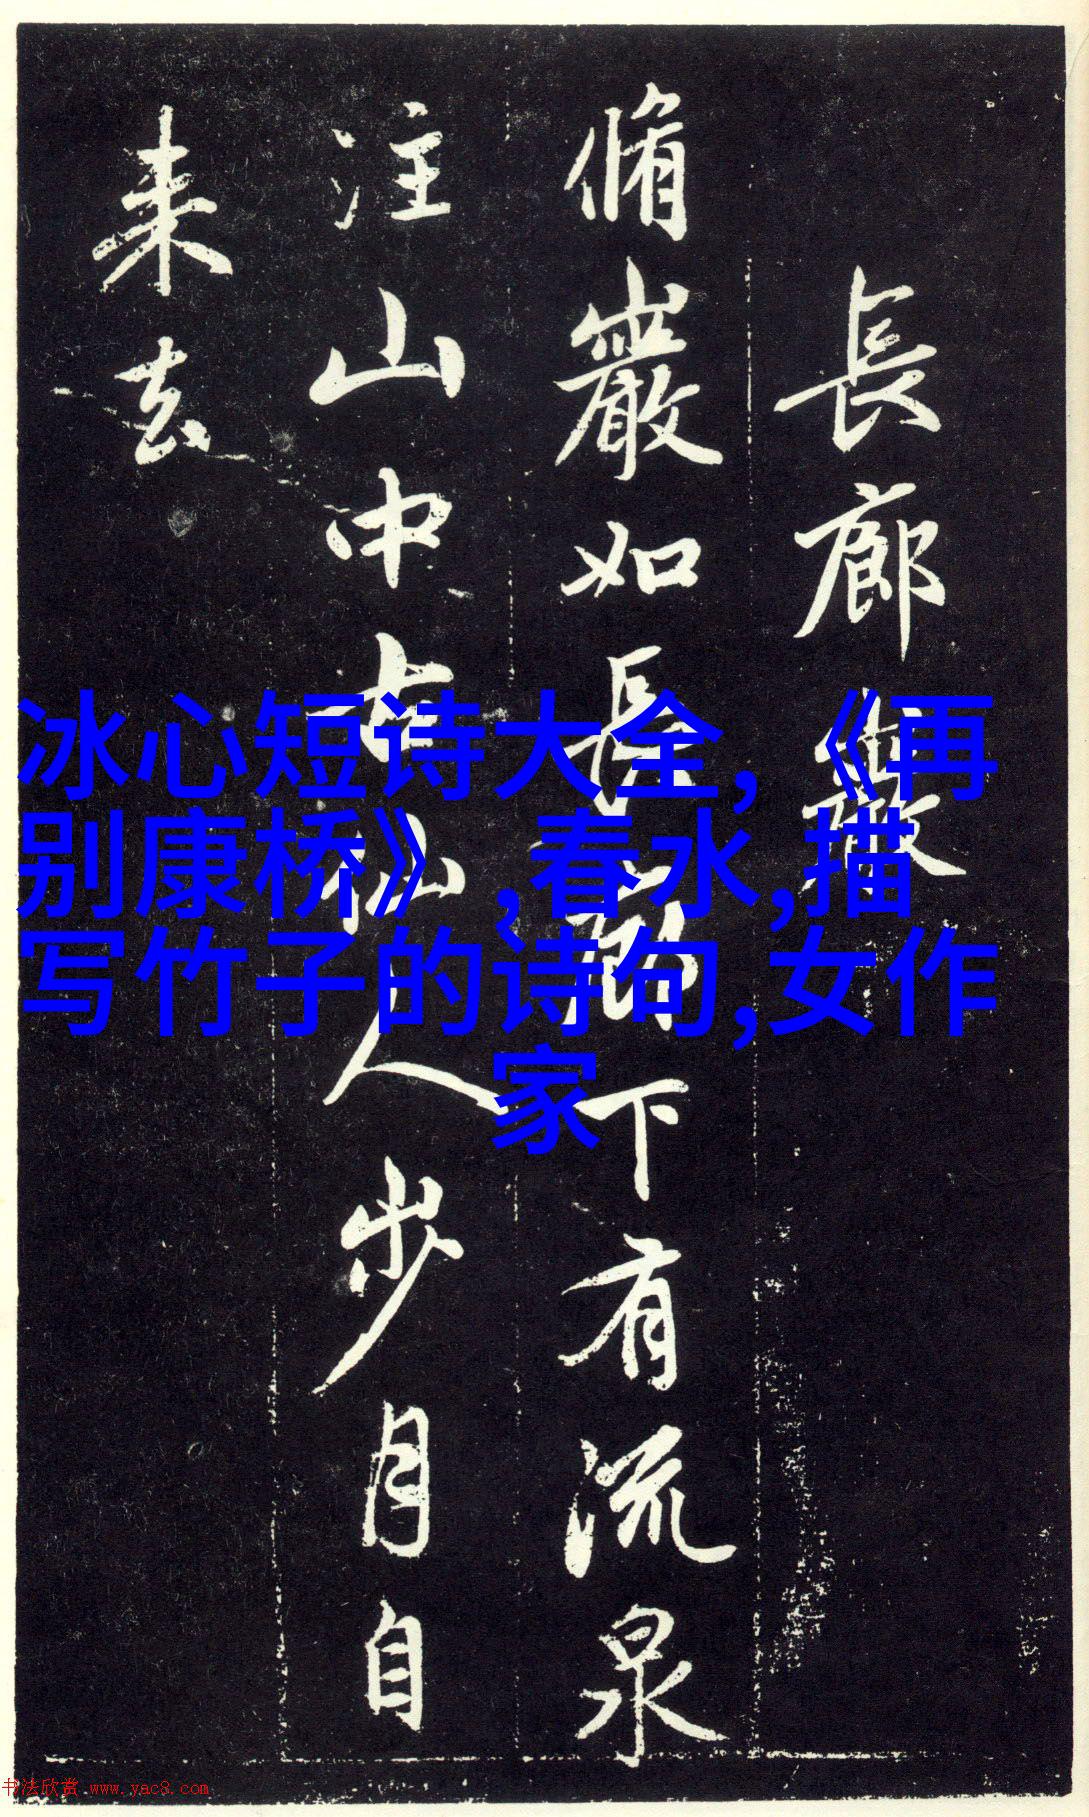 長廊巖
脩巖如長廊下有流泉
注山中古仙人步月自
来去
冰心短诗大全,《再
别康桥》,春水,描
写竹子的诗句,女作
家
书法欣赏 www.yac8.com